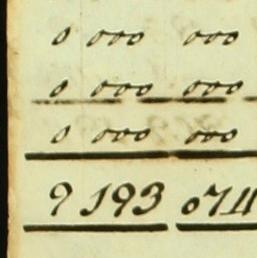 0 000 000
0 000 000
0 000 000
9 193 074